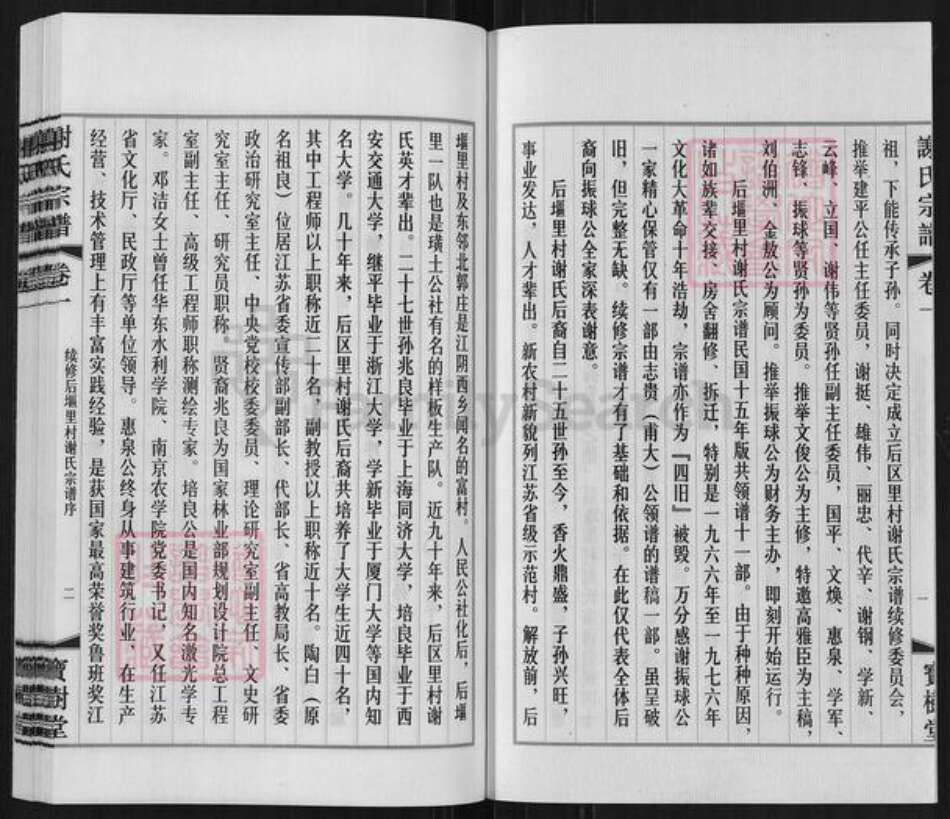 谢氏宗谱 卷一
一
寶樹堂
祖，下能传承子孙。同时决定成立后区里村谢氏宗谱续修委员会，
推举建平公任主任委员，谢挺、雄伟、丽忠、代辛、谢钢、学新、
云峰、立国、谢伟等贤孙任副主任委员，国平、文焕、惠泉、学军、
志锋、振球等贤孙为委员。推举文俊公为主修，特邀高雅臣为主稿，
刘伯洲、金敖公为顾问。推举振球公为财务主办，即刻开始运行。
后堰里村谢氏宗谱民国十五年版共领谱十一部。由于种种原因，
诸如族辈交接、房舍翻修、拆迁，特别是一九六六年至一九七六年
文化大革命十年浩劫，宗谱亦作为『四旧』被毁。万分感谢振球公
一家精心保管仅有一部由志贵（甫大）公领谱的谱稿一部。虽呈破
旧，但完整无缺。续修宗谱才有了基础和依据。在此仅代表全体后
裔向振球公全家深表谢意。
后堰里村谢氏后裔自二十五世孙至今，香火鼎盛，子孙兴旺，
事业发达，人才辈出。新农村新貌列江苏省级示范村。解放前，后
堰里村及东邻北郭庄是江阴西乡闻名的富村。人民公社化后，后堰
里一队也是璜土公社有名的样板生产队。近九十年来，后区里村谢
氏英才辈出。二十七世孙兆良毕业于上海同济大学，培良毕业于西
安交通大学，继平毕业于浙江大学，学新毕业于厦门大学等国内知
名大学。几十年来，后区里村谢氏后裔共培养了大学生近四十名，
其中工程师以上职称近二十名，副教授以上职称近十名。陶白（原
名祖良）位居江苏省委宣传部副部长、代部长、省高教局长、省委
政治研究室主任、中央党校校委委员、理论研究室副主任、文史研
究室主任、研究员职称。贤裔兆良为国家林业部规划设计院总工程
室副主任、高级工程师职称测绘专家。培良公是国内知名激光学专
家。邓洁女士曾任华东水利学院、南京农学院党委书记，又任江苏
省文化厅、民政厅等单位领导。惠泉公终身从事建筑行业，在生产
经营、技术管理上有丰富实践经验，是获国家最高荣誉奖鲁班奖江
谢氏宗谱 卷一
续修后堰里村谢氏宗谱序
二
寶樹堂
FamilySearch